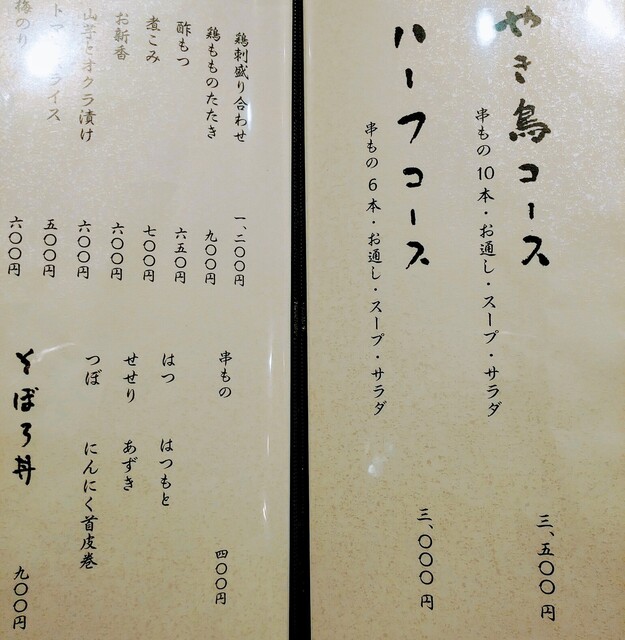 やき鳥コース
串もの10本・お通し・スープ・サラダ
三、五〇〇円
ハーフコース
串もの6本・お通し・スープ・サラダ
三、〇〇〇円
鶏刺盛り合わせ 一、二〇〇円
鶏もものたたき 九〇〇円
酢もつ 六五〇円
煮こみ 七〇〇円
お新香 六〇〇円
山芋とオクラ漬け 六〇〇円
トマ イス 五〇〇円
梅のり 六〇〇円
串もの 四〇〇円
はつ はつもと
せせり あずき
つぼ にんにく首皮巻
そぼろ丼 九〇〇円